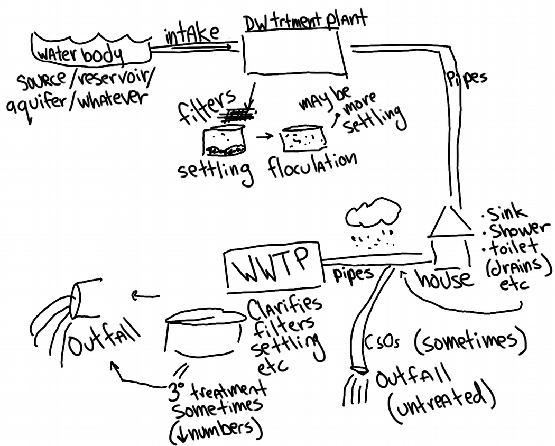 WAter body
intAke
DW trtment plant
source/reservoir/
aquifer/whatever
filters
settling
floculation
mAybe
more
settling
Pipes
• Sink
• Shower
• toilet
(drains)
etc
house
pipes
WWTP
Clarifies
filters
settling
etc
3° treatment
sometimes
(↓numbers)
OUtfAll
CSOs (sometimes)
OUtfAll
(untreated)